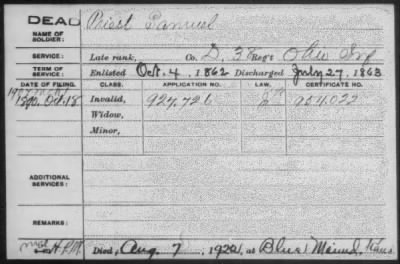 DEAD
NAME OF SOLDIER: Priest Samuel
SERVICE: Late rank, Co. D, 38 Reg't Ohio Inf
TERM OF SERVICE: Enlisted Oct. 4, 1862 Discharged July 27, 1863
DATE OF FILING. CLASS. APPLICATION NO. LAW. CERTIFICATE NO.
1890, Oct. 18 Invalid, 927,726 954,022
Widow,
Minor,
ADDITIONAL SERVICES:
REMARKS:
Died, Aug 7, 1922, at Blue Mound, Kans